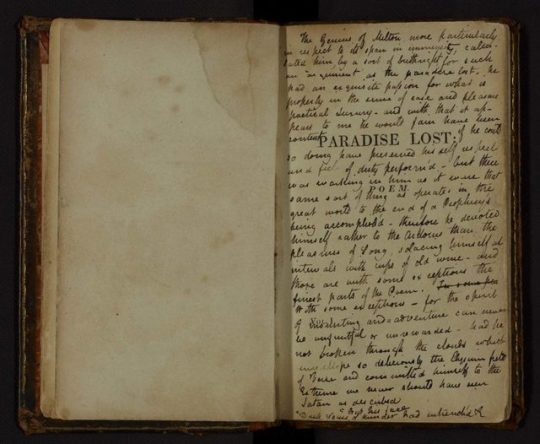 The Genius of Milton, more particularly
in respect to its span in immensity, calcu-
lated him, by a sort of birthright, for such
an 'argument' as the paradise lost. he
had an exquisite passion for what is
properly in the sense of ease and pleasure
poetical Luxury - and with that it ap-
pears to me he would fain have been
content
PARADISE LOST:
if he could
so doing have preserved his self respect
and feel of duty perform'd - but there
was working in him as it were that
POEM
same sort of thing as operates in the
great world to the end of a Prophecy's
being accomplish'd - therefore he devoted
himself rather to the Ardours than the
pleasures of Song, solacing himself at
intervals with cups of old wine - and
those are with some exceptions the
finest parts of the Poem.
With some exceptions - for the spirit
of mounting and adventure can never
be unfruitful or unrewarded - had he
not broken through the clouds which
envellope so deliciously the Elysian fields
of Verse, and committed himself to the
Extreme we never should have seen
Satan as described
"But his face
Deep Scars of thunder had intrench'd &